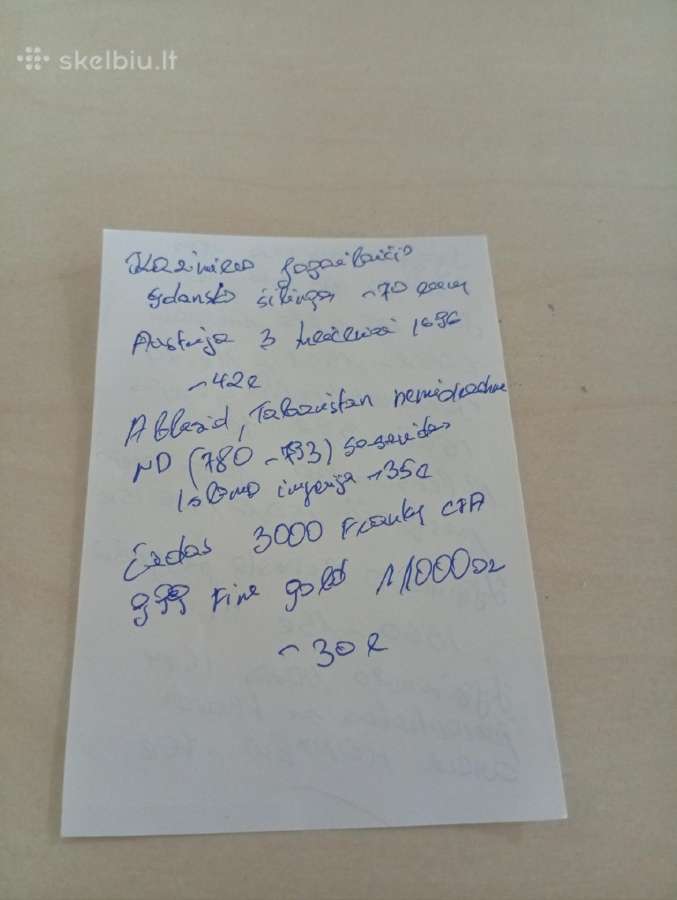 skelbiu.lt
Kazimiero Jogailaičio
Gdansko šilingas ~70 eurų
Austrija 3 kreiceriai 1696
~42e
Abbasid, Tabaristan hemidrachm
ND (780 - 793) Sasanidas
Islamo imperija ~35e
Čadas 3000 Frankų CFA
999 Fine gold 1/1000oz
~30e